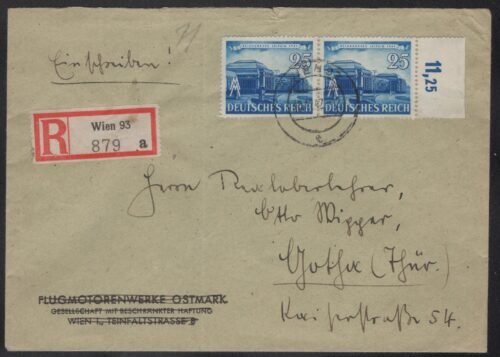 Einschreiben!
25
25
DEUTSCHES REICH
DEUTSCHES REICH
11,25
R
Wien 93
879 a
Herrn Realoberlehrer,
Otto Wipper,
Gotha (Thür.)
Kaiserstraße 54.
FLUGMOTORENWERKE OSTMARK
GESELLSCHAFT MIT BESCHRÄNKTER HAFTUNG
WIEN I., TEINFALTSTRASSE 8